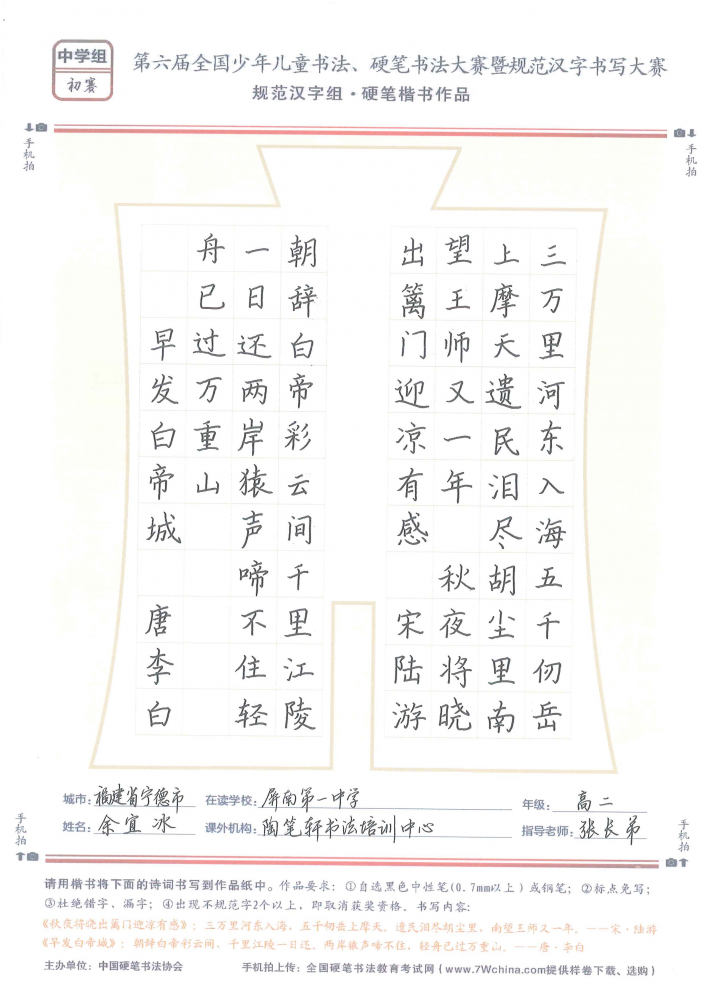 中学组
初赛
第六届全国少年儿童书法、硬笔书法大赛暨规范汉字书写大赛
规范汉字组·硬笔楷书作品
手机拍
手机拍
三万里河东入海五千仞岳
上摩天遗民泪尽胡尘里南
望王师又一年 秋夜将晓
出篱门迎凉有感 宋陆游
朝辞白帝彩云间千里江陵
一日还两岸猿声啼不住轻
舟已过万重山
早发白帝城 唐李白
城市：福建省宁德市 在读学校：屏南第一中学 年级：高二
姓名：余宜冰 课外机构：陶笔轩书法培训中心 指导老师：张长弟
手机拍
手机拍
请用楷书将下面的诗词书写到作品纸中。作品要求：①自选黑色中性笔(0.7mm以上)或钢笔；②标点免写；
③杜绝错字、漏字；④出现不规范字2个以上，即取消获奖资格。书写内容：
《秋夜将晓出篱门迎凉有感》：三万里河东入海，五千仞岳上摩天。遗民泪尽胡尘里，南望王师又一年。——宋·陆游
《早发白帝城》：朝辞白帝彩云间，千里江陵一日还。两岸猿声啼不住，轻舟已过万重山。——唐·李白
主办单位：中国硬笔书法协会 手机拍上传：全国硬笔书法教育考试网（www.7Wchina.com提供样卷下载、选购）